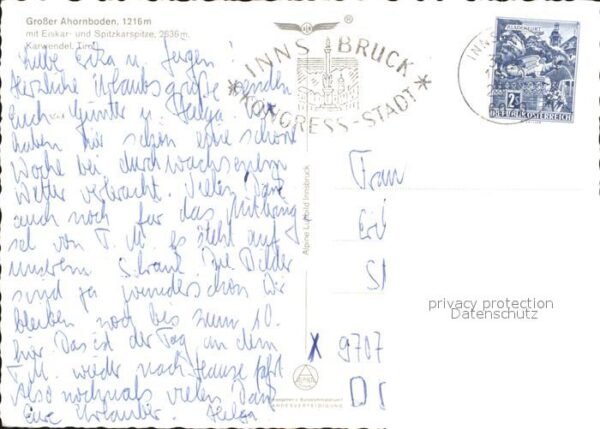 Großer Ahornboden, 1216 m
mit Eiskar- und Spitzkarspitze, 2636 m,
Karwendel, Tirol
®
INNSBRUCK
* KONGRESS-STADT *
INNS
KLAGENFURT
2 S
REPUBLIK ÖSTERREICH
Liebe Erika u. Jürgen!
Herzliche Urlaubsgrüße senden
Euch Günter u. Helga. Wir
haben hier schon eine schöne
Woche bei durchwachsenem
Wetter verbracht. Vielen Dank
auch noch für das Mitbring
sel von T. M. es steht auf
unserem Schrank. Die Bilder
sind ja wunderschön. Wir
bleiben noch bis zum 10.
hier. Das ist der Tag an dem
T. M. wieder nach Hause fährt
Also nochmals vielen Dank
Eure Urlauber. Helga
Alpine Luftbild Innsbruck
Frau
Eri
S
privacy protection
Datenschutz
X 9707
D
LANDESVERTEIDIGUNG